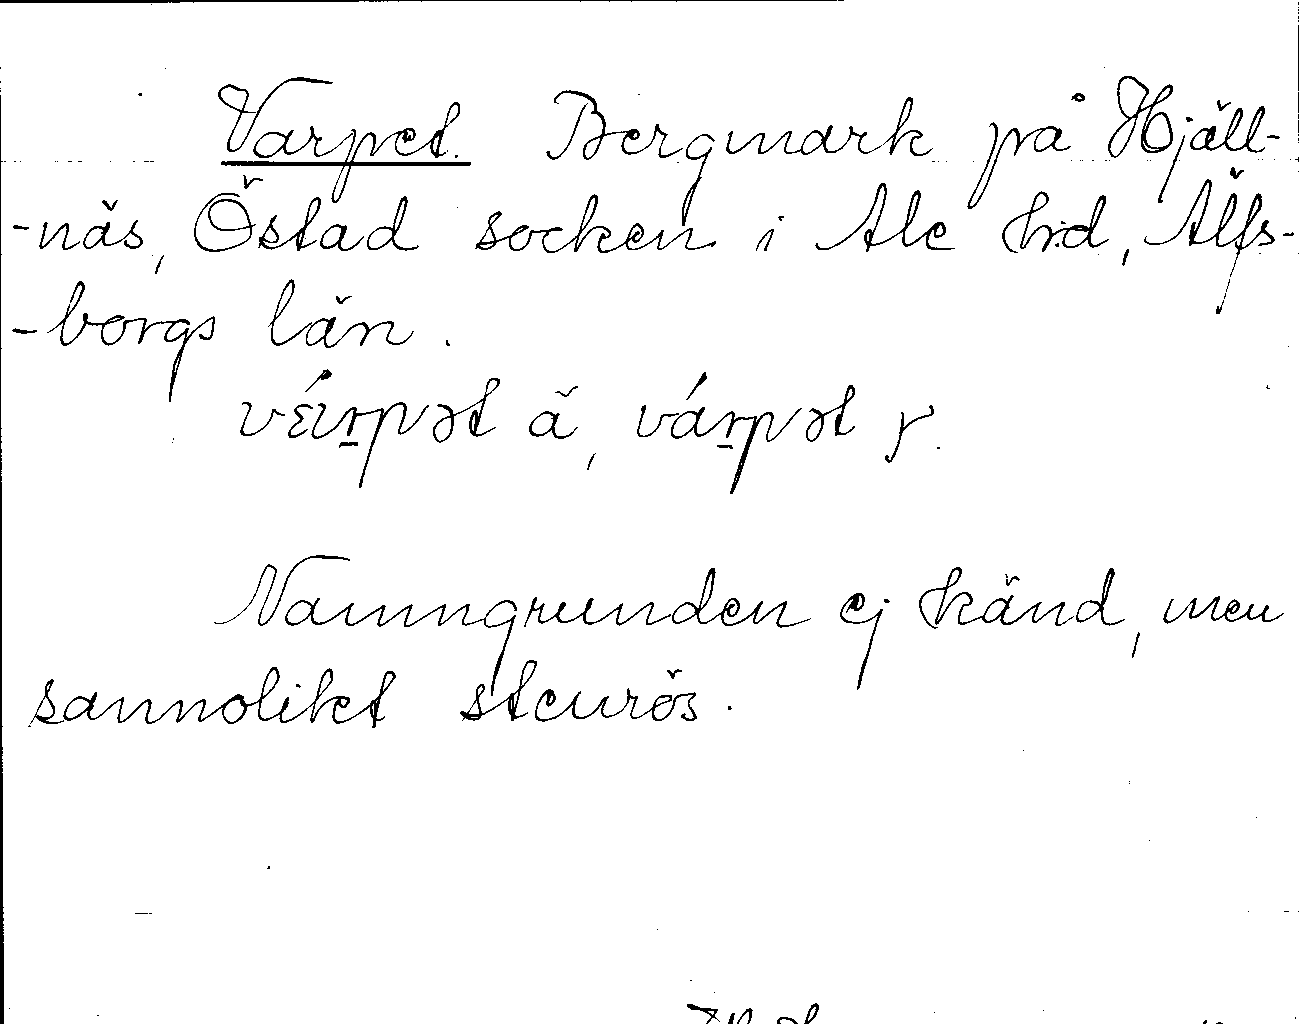 Varpet. Bergmark på Hjäll-
-näs, Östad socken i Ale hrd, Älfs-
-borgs län.
várpət ä, várpət y.
Namngrunden ej känd, men
sannolikt stenrös.